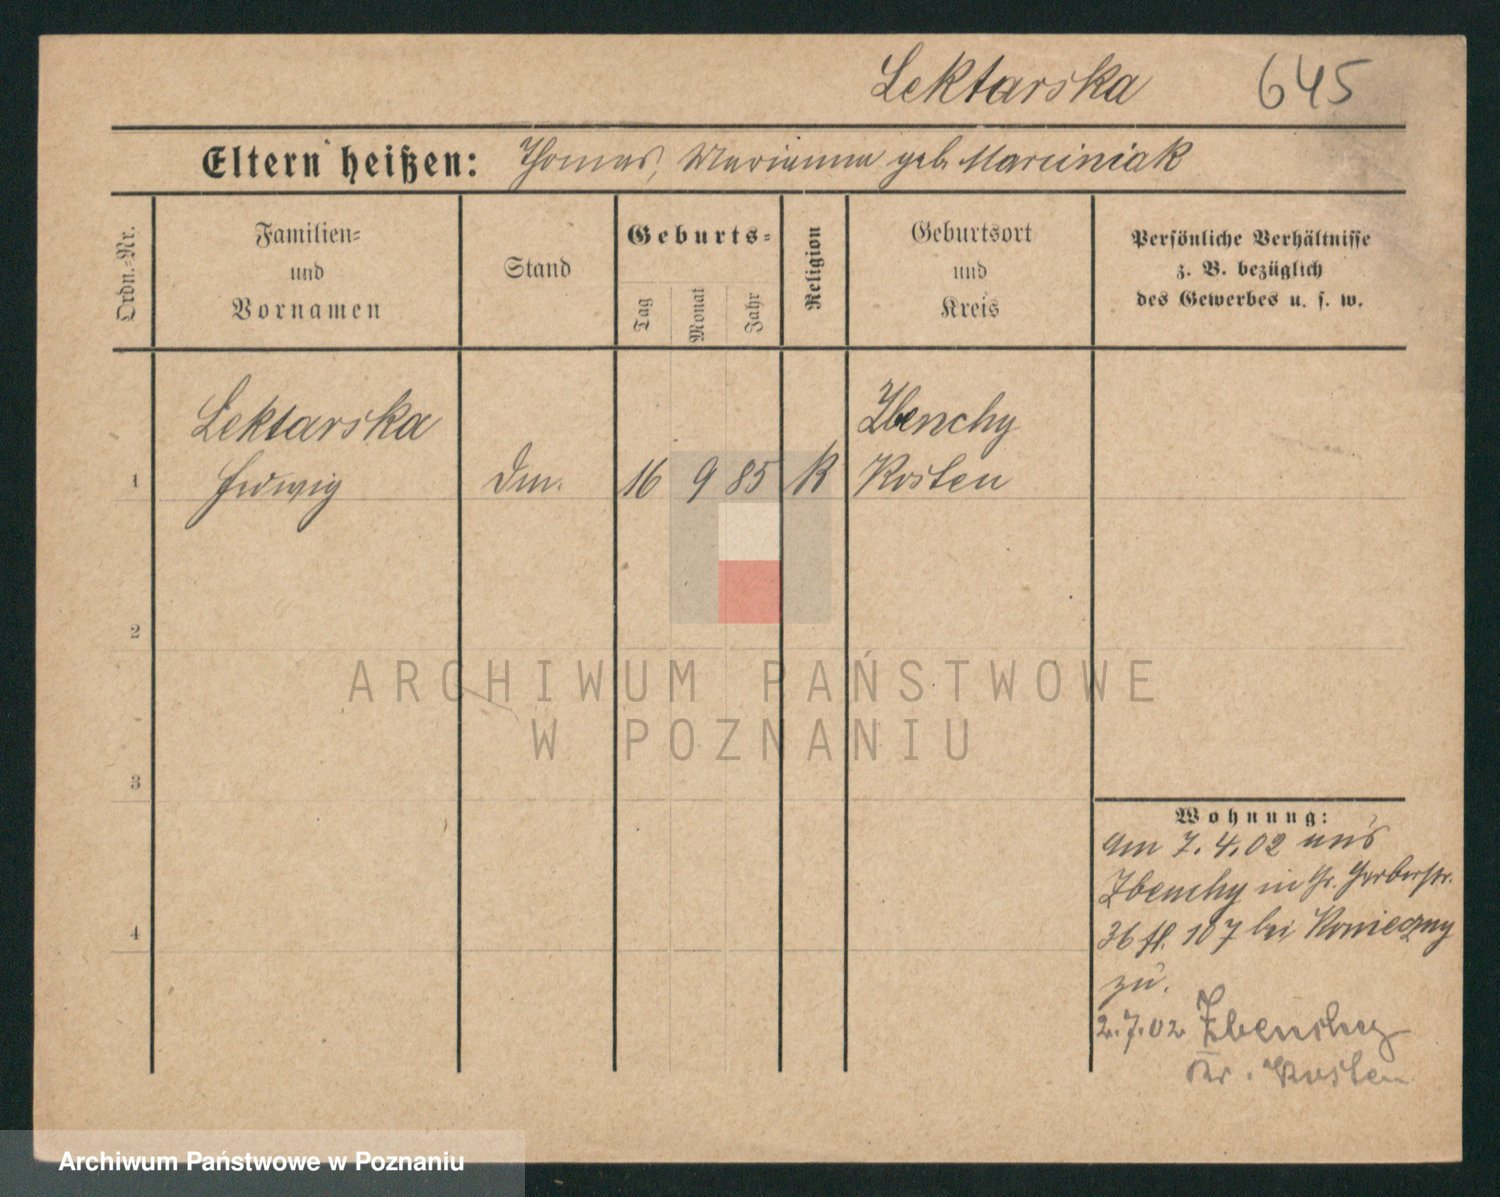 Lektarska 645
Eltern heißen: Thomas, Marianna geb. Marciniak
Ordn.-Nr.
Familien-
und
Vornamen
Stand
Geburts-
Tag
Monat
Jahr
Religion
Geburtsort
und
Kreis
Persönliche Verhältnisse
z. B. bezüglich
des Gewerbes u. s. w.
Lektarska Zbenchy
1 Hedwig Dm. 16 9 85 K Kosten
2
3
4
Wohnung:
am 7.4.02 aus
Zbenchy in Gr. Gerberstr.
36 fl. 107 bei Konieczny
zu.
2.7.02 Zbenchy
Kr. Kosten
ARCHIWUM PAŃSTWOWE
W POZNANIU
Archiwum Państwowe w Poznaniu